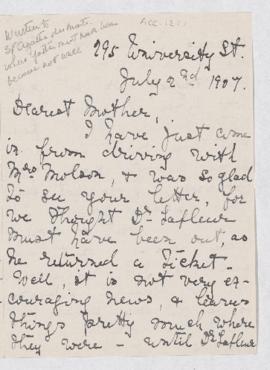 Written to
St Agathe des Monts
where father
because not well
ACC. 1211
295 University St.
July 2nd 1907.
Dearest Mother,
I have just come
in from driving with
Mrs Molson, & was so glad
to see your letter, for
we thought Dr Lafleur
must have been out, as
he returned a ticket -
Well, it is not very en-
couraging news, & leaves
things pretty much where
they were - until Dr Lafleur